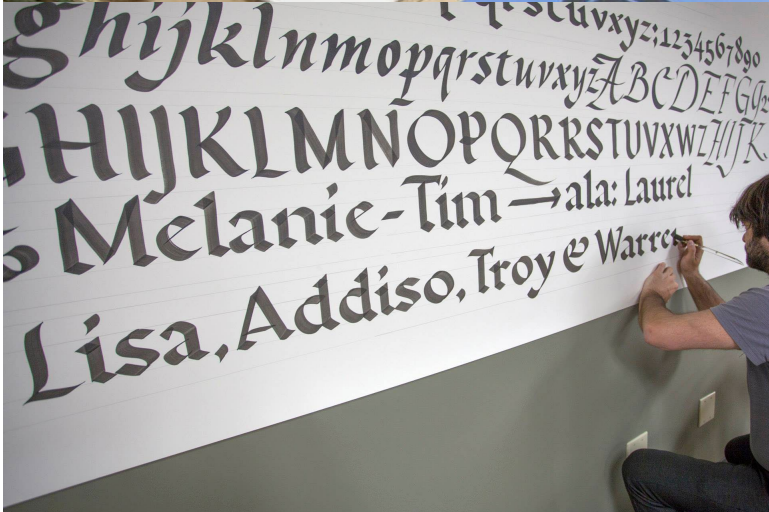 pqrstuvxyz;1234567890
ghijklnmopqrstuvxyzABCDEFGG
GHIJKLMNOPQRRSTUVXWZHIJK
Melanie-Tim → ala: Laurel
Lisa, Addiso, Troy & Warre